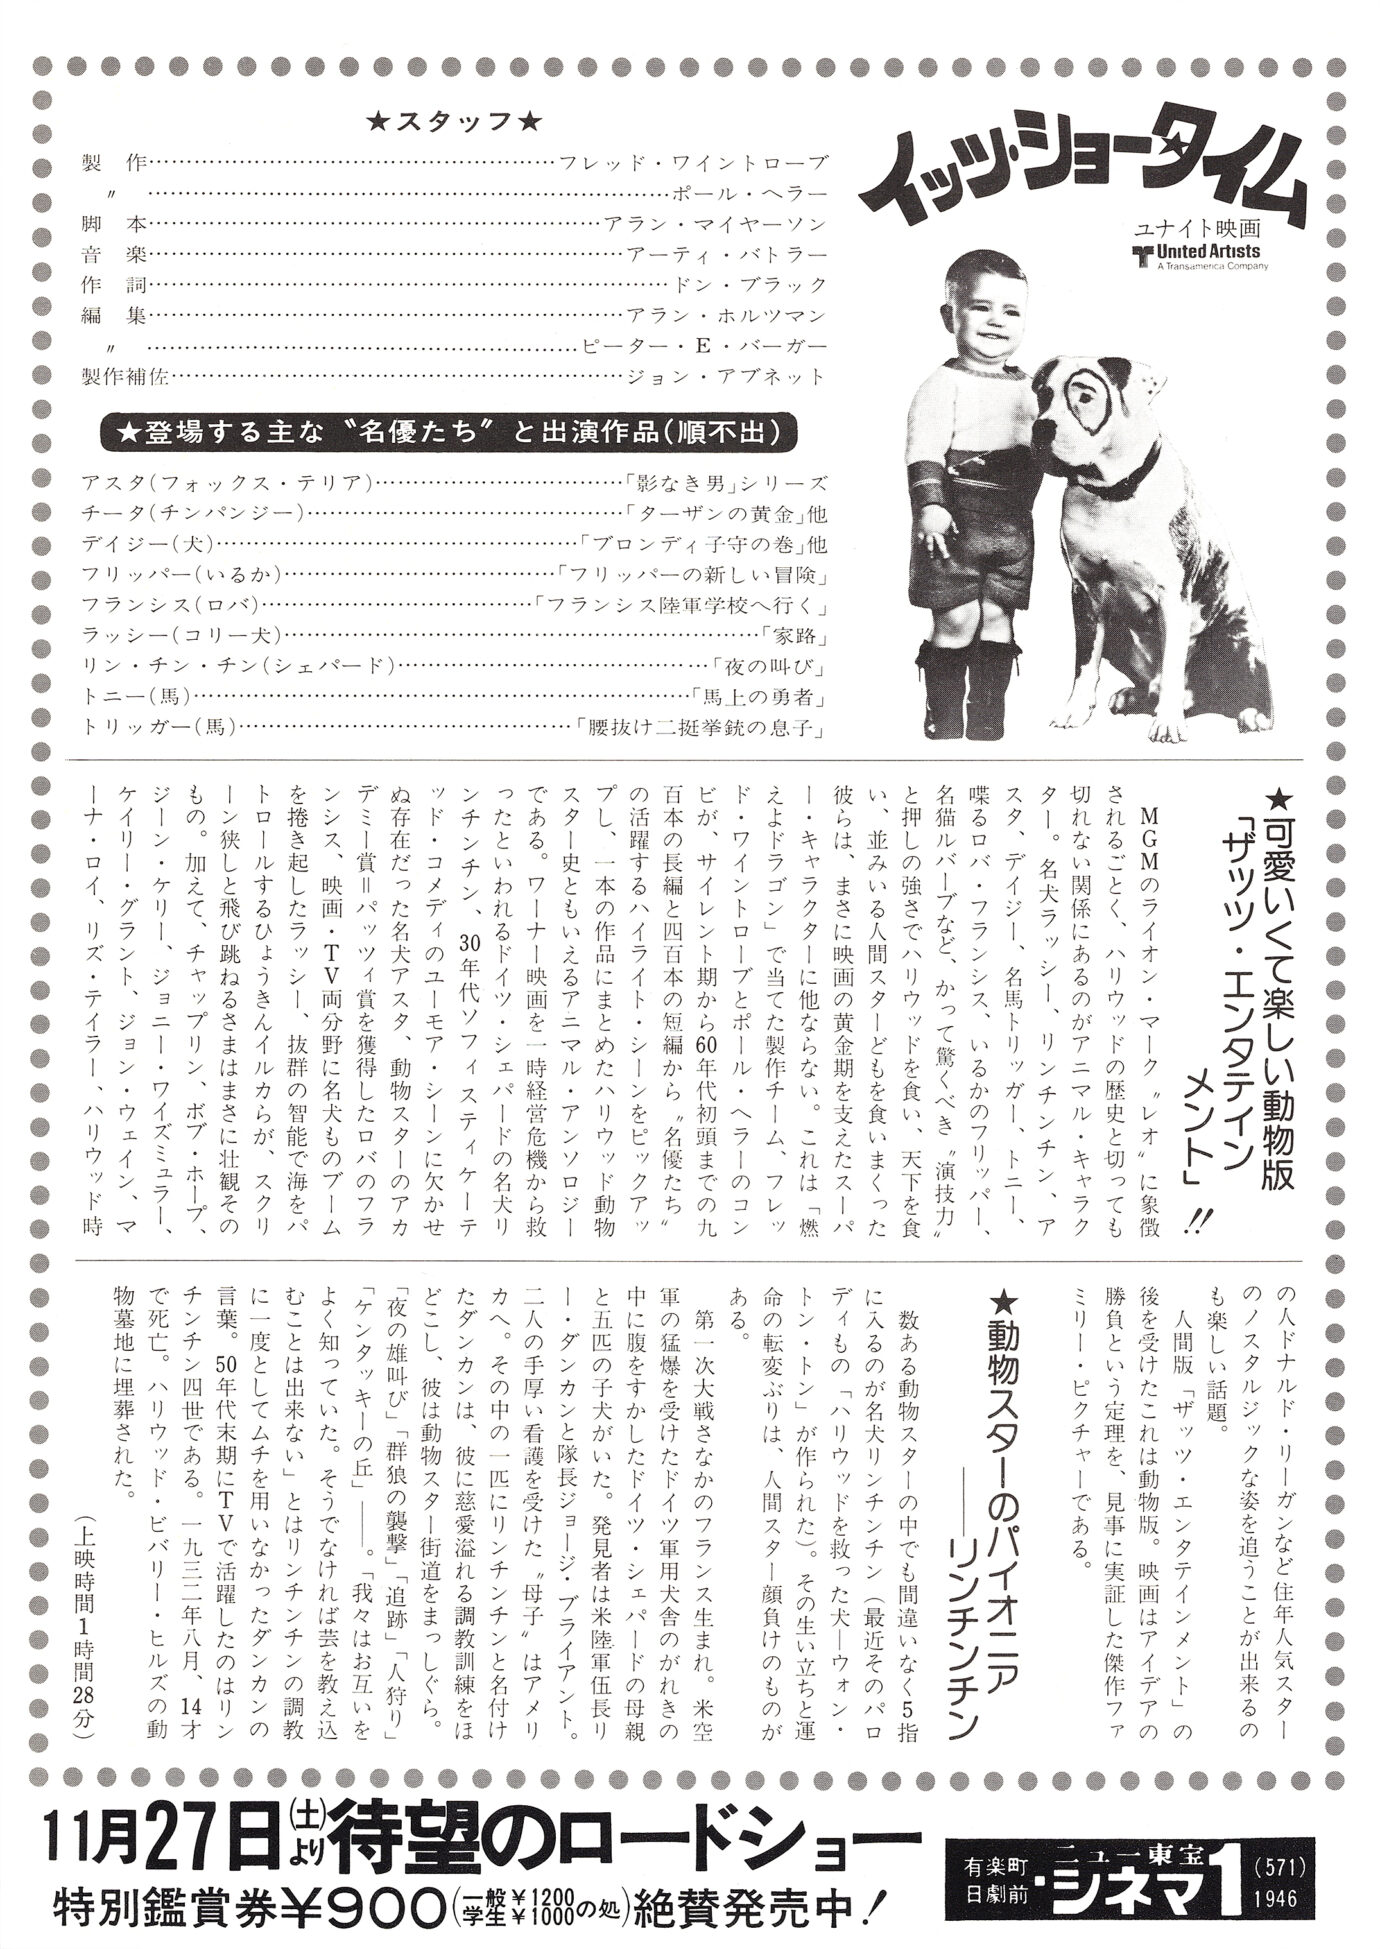 イッツ・ショータイム
ユナイト映画
United Artists
A Transamerica Company
★スタッフ★
製　作……フレッド・ワイントローブ
〃　……ポール・ヘラー
脚　本……アラン・マイヤーソン
音　楽……アーティ・バトラー
作　詞……ドン・ブラック
編　集……アラン・ホルツマン
〃　……ピーター・E・バーガー
製作補佐……ジョン・アブネット
★登場する主な〝名優たち〟と出演作品(順不出)
アスタ(フォックス・テリア)……「影なき男」シリーズ
チータ(チンパンジー)……「ターザンの黄金」他
デイジー(犬)……「ブロンディ子守の巻」他
フリッパー(いるか)……「フリッパーの新しい冒険」
フランシス(ロバ)……「フランシス陸軍学校へ行く」
ラッシー(コリー犬)……「家路」
リン・チン・チン(シェパード)……「夜の叫び」
トニー(馬)……「馬上の勇者」
トリッガー(馬)……「腰抜け二挺拳銃の息子」
★可愛いくて楽しい動物版
「ザッツ・エンタテイン
メント」!!
MGMのライオン・マーク〝レオ〟に象徴
されるごとく、ハリウッドの歴史と切っても
切れない関係にあるのがアニマル・キャラク
ター。名犬ラッシー、リンチンチン、ア
スタ、デイジー、名馬トリッガー、トニー、
喋るロバ・フランシス、いるかのフリッパー、
名猫ルバーブなど、かって驚くべき〝演技力〟
と押しの強さでハリウッドを食い、天下を食
い、並みいる人間スターどもを食いまくった
彼らは、まさに映画の黄金期を支えたスーパ
ー・キャラクターに他ならない。これは「燃
えよドラゴン」で当てた製作チーム、フレッ
ド・ワイントローブとポール・ヘラーのコン
ビが、サイレント期から60年代初頭までの九
百本の長編と四百本の短編から〝名優たち〟
の活躍するハイライト・シーンをピックアッ
プし、一本の作品にまとめたハリウッド動物
スター史ともいえるアニマル・アンソロジー
である。ワーナー映画を一時経営危機から救
ったといわれるドイツ・シェパードの名犬リ
ンチンチン、30年代ソフィスティケーテ
ッド・コメディのユーモア・シーンに欠かせ
ぬ存在だった名犬アスタ、動物スターのアカ
デミー賞＝パッツィ賞を獲得したロバのフラ
ンシス、映画・TV両分野に名犬ものブーム
を捲き起したラッシー、抜群の智能で海をパ
トロールするひょうきんイルカらが、スクリ
ーン狭しと飛び跳ねるさまはまさに壮観その
もの。加えて、チャップリン、ボブ・ホープ、
ジーン・ケリー、ジョニー・ワイズミュラー、
ケイリー・グラント、ジョン・ウェイン、マ
ーナ・ロイ、リズ・テイラー、ハリウッド時
の人ドナルド・リーガンなど往年人気スター
のノスタルジックな姿を追うことが出来るの
も楽しい話題。
人間版「ザッツ・エンタテインメント」の
後を受けたこれは動物版。映画はアイデアの
勝負という定理を、見事に実証した傑作ファ
ミリー・ピクチャーである。
★動物スターのパイオニア
――リンチンチン
数ある動物スターの中でも間違いなく5指
に入るのが名犬リンチンチン（最近そのパロ
ディもの「ハリウッドを救った犬―ウォン・
トン・トン」が作られた）。その生い立ちと運
命の転変ぶりは、人間スター顔負けのものが
ある。
第一次大戦さなかのフランス生まれ。米空
軍の猛爆を受けたドイツ軍用犬舎のがれきの
中に腹をすかしたドイツ・シェパードの母親
と五匹の子犬がいた。発見者は米陸軍伍長リ
ー・ダンカンと隊長ジョージ・ブライアント。
二人の手厚い看護を受けた〝母子〟はアメリ
カへ。その中の一匹にリンチンチンと名付け
たダンカンは、彼に慈愛溢れる調教訓練をほ
どこし、彼は動物スター街道をまっしぐら。
「夜の雄叫び」「群狼の襲撃」「追跡」「人狩り」
「ケンタッキーの丘」――。「我々はお互いを
よく知っていた。そうでなければ芸を教え込
むことは出来ない」とはリンチンチンの調教
に一度としてムチを用いなかったダンカンの
言葉。50年代末期にTVで活躍したのはリン
チンチン四世である。一九三二年八月、14才
で死亡。ハリウッド・ビバリー・ヒルズの動
物墓地に埋葬された。
（上映時間1時間28分）
11月27日(土)より待望のロードショー
特別鑑賞券￥900(一般￥1200 学生￥1000の処)絶賛発売中!
有楽町 日劇前・ニュー東宝シネマ1 (571) 1946